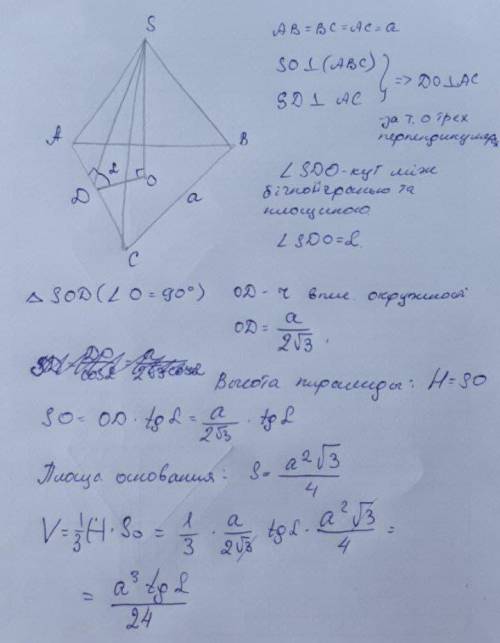 S
AB=BC=AC=a
SO⊥(ABC)
SD⊥ AC
=> DO⊥AC
за т. о трех
перпендикулярах
A
B
D
α
O
a
C
∠SDO-кут між
бічной гранью та
площиною
∠SDO=α.
△ SOD(∠O=90°) OD- r впис. окружности
OD= a/2√3.
Высота пирамиды: H=SO
SO= OD·tgα= a/2√3 · tgα
Площа основания: S= a²√3/4
V=1/3 H·So = 1/3 · a/2√3 tgα · a²√3/4 =
= a³ tgα/24